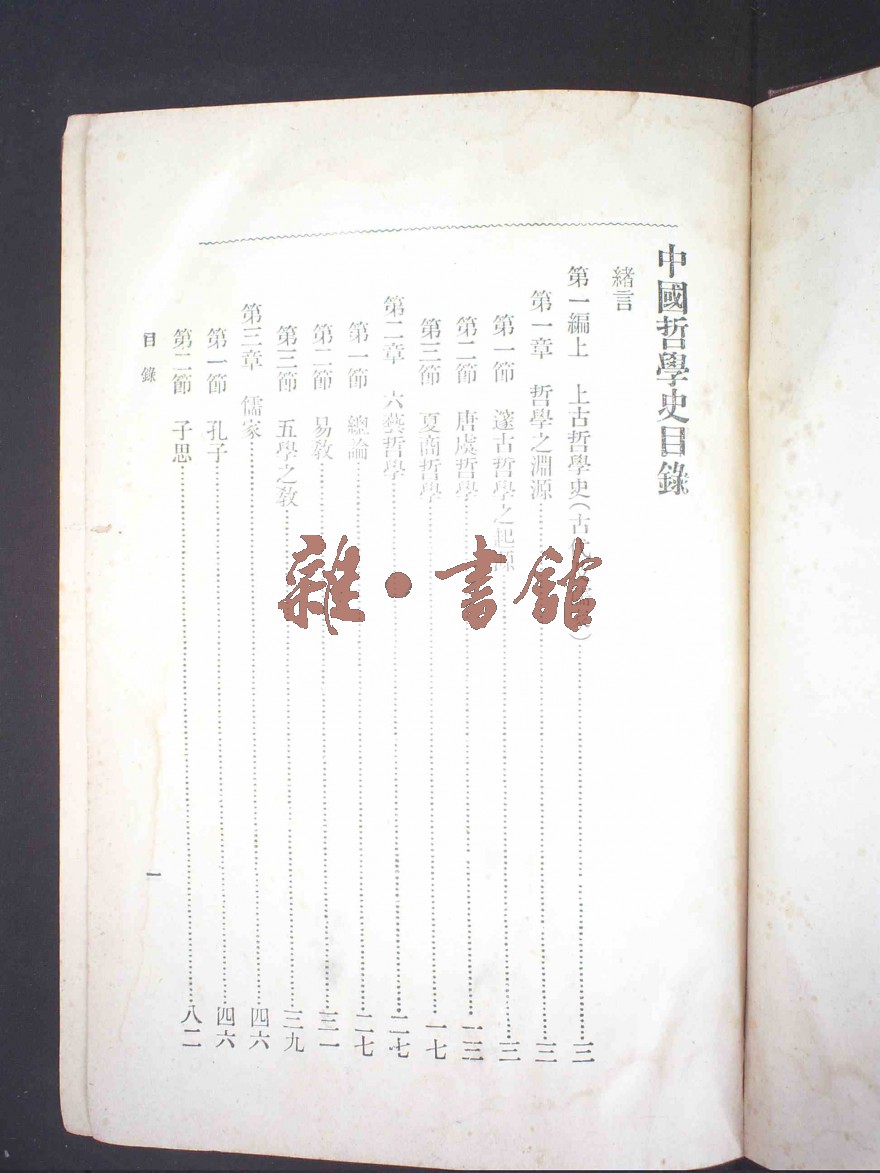 中國哲學史目錄
緒言
第一編上 上古哲學史(古代 )……三
第一章 哲學之淵源……三
第一節 邃古哲學之起源……三
第二節 唐虞哲學……一三
第三節 夏商哲學……一七
第二章 六藝哲學……二七
第一節 總論……二七
第二節 易教……三一
第三節 五學之教……三九
第三章 儒家……四六
第一節 孔子……四六
第二節 子思……八二
目錄 一
雜·書館